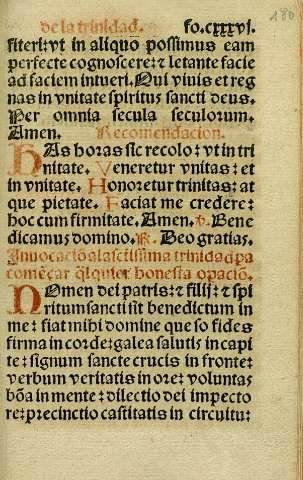 de la trinidad. fo.cxxxvj.
180
fiteri: vt in aliquo possimus eam
perfecte cognoscere: ⁊ letante facie
ad faciem intueri. Qui viuis et reg
nas in vnitate spiritus sancti deus.
Per omnia secula seculorum.
Amen. Recomendacion.
HAs horas sic recolo: vt in tri
nitate. Veneretur vnitas: et
in vnitate. Honoretur trinitas: at
que pietate. Faciat me credere:
hoc cum firmitate. Amen. ℣. Bene
dicamus domino. ℟. Deo gratias.
Inuocaciō a la sctissima trinidad pa
començar q̄lquier honesta opaciō.
NOmen dei patris: ⁊ filij: ⁊ spi
ritum sancti sit benedictum in
me: fiat mihi domine que so fides
firma in corde: galea salutis in capi
te: signum sancte crucis in fronte:
verbum veritatis in ore: voluntas
bōa in mente: dilectio dei impecto
re: precinctio castitatis in circuitu: